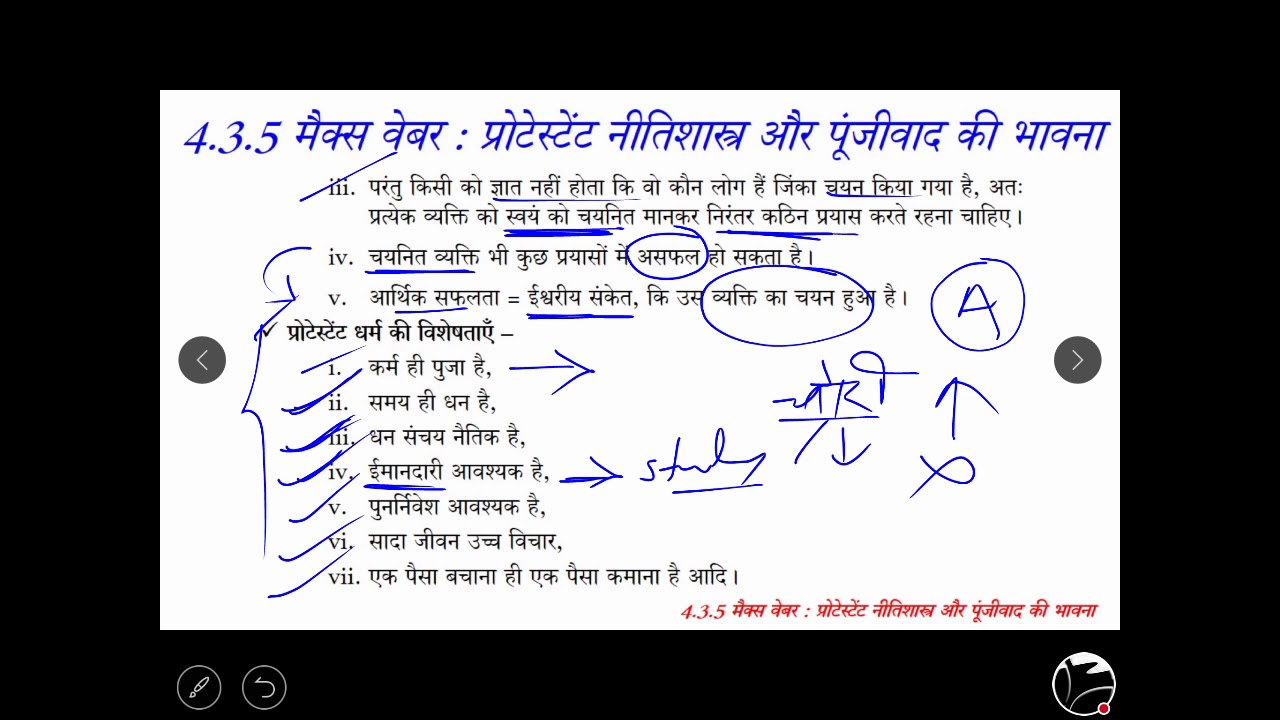 4.3.5 मैक्स वेबर : प्रोटेस्टेंट नीतिशास्त्र और पूंजीवाद की भावना
iii. परंतु किसी को ज्ञात नहीं होता कि वो कौन लोग हैं जिंका चयन किया गया है, अतः
प्रत्येक व्यक्ति को स्वयं को चयनित मानकर निरंतर कठिन प्रयास करते रहना चाहिए।
iv. चयनित व्यक्ति भी कुछ प्रयासों में असफल हो सकता है।
v. आर्थिक सफलता = ईश्वरीय संकेत, कि उस व्यक्ति का चयन हुआ है।
A
✓ प्रोटेस्टेंट धर्म की विशेषताएँ –
i. कर्म ही पुजा है,
ii. समय ही धन है,
चोरी
iii. धन संचय नैतिक है,
iv. ईमानदारी आवश्यक है,
study
v. पुनर्निवेश आवश्यक है,
vi. सादा जीवन उच्च विचार,
vii. एक पैसा बचाना ही एक पैसा कमाना है आदि।
4.3.5 मैक्स वेबर : प्रोटेस्टेंट नीतिशास्त्र और पूंजीवाद की भावना